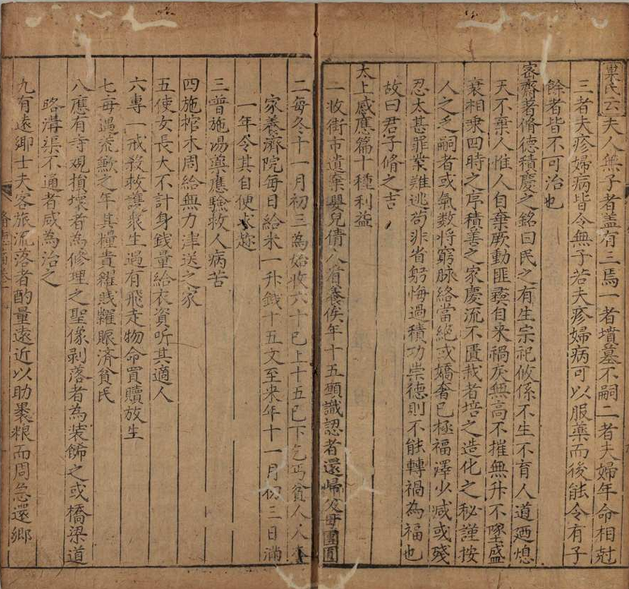 葉氏云夫人無子者蓋有三焉一者墳墓不嗣二者夫婦年命相尅
三者夫疹婦病皆令無子若夫疹婦病可以服藥而後能令有子
餘者皆不可治也
窓齋者脩德積慶之銘曰民之有生宗祀攸係不生不育人道廼熄
天不棄人惟人自棄厥動匪彝自采禍灰無高不摧無升不墜盛
衰相乘四時之序積善之家慶流不匱栽者培之造化之秘謹按
人之乏嗣者或氣數將窮脉絡當絶或嬌奢已極福澤少咸或殘
忍太甚罪業難逃苟非省躬悔過積功崇德則不能轉禍為福也
故曰君子脩之吉
太上感應篇十種利益
一收街市遺棄嬰兒倩人看養俟年十五願識認者還歸父母團圓
二每冬十一月初三為始收六十已上十五已下乞丐貧人入
家養濟院每日給米一升錢十五文至来年十一月初三日滿
一年令其自便求趁
三普施塲藥應驗救人病苦
四施棺木周給無力津送之家
五使女長大不計身錢量給衣資听其適人
六專一戒殺救護衆生遇有飛走物命買贖放生
七每遇荒歉之年其糧貴糴賎糶賑濟貧民
八應有寺觀損壊者為修理之聖像剥落者為装飾之或橋梁道
路溝渠不通者咸為治之
九有遠鄉士夫客旅流落者酌量遠近以助褁粮而周急還鄉